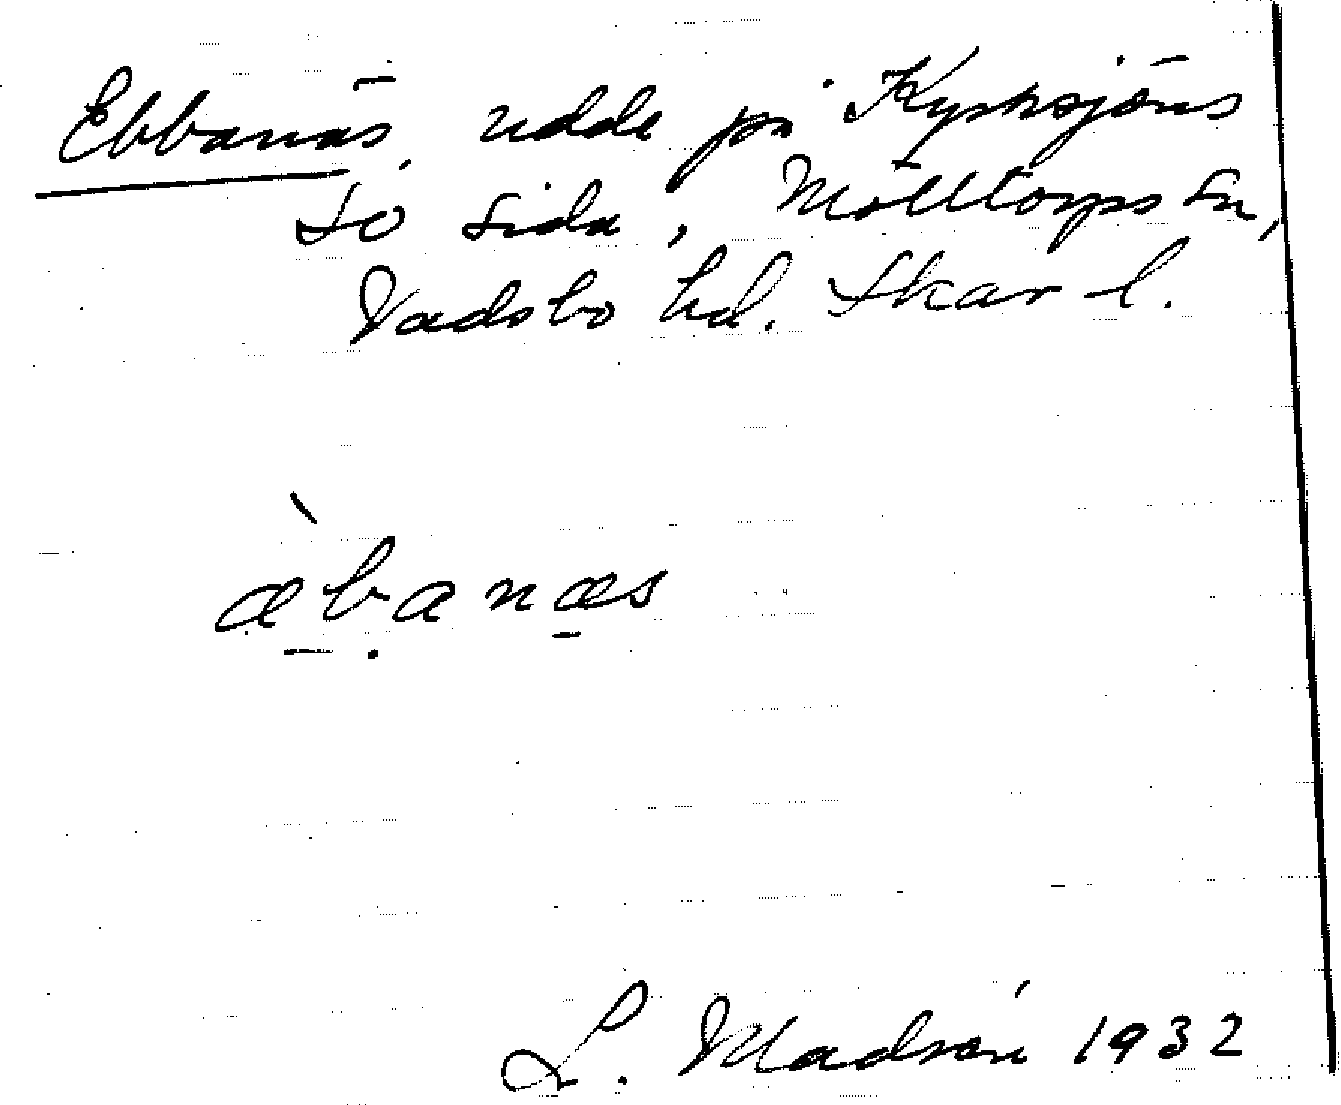 Ebbanäs, udde på Kyrksjöns
sö sida, Mölltorps sn,
Vadsbo hd. Skar l.
æ̀banæs
L. Madsén 1932